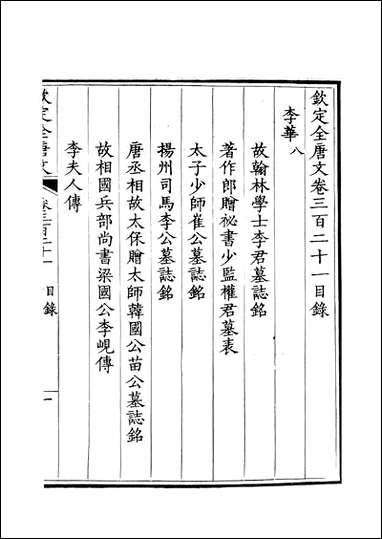 欽定全唐文卷三百二十一目錄
李華八
故翰林學士李君墓誌銘
著作郎贈祕書少監權君墓表
太子少師崔公墓誌銘
揚州司馬李公墓誌銘
唐丞相故太保贈太師韓國公苗公墓誌銘
故相國兵部尚書梁國公李峴傳
李夫人傳
欽定全唐文 卷三百二十一 目錄 一